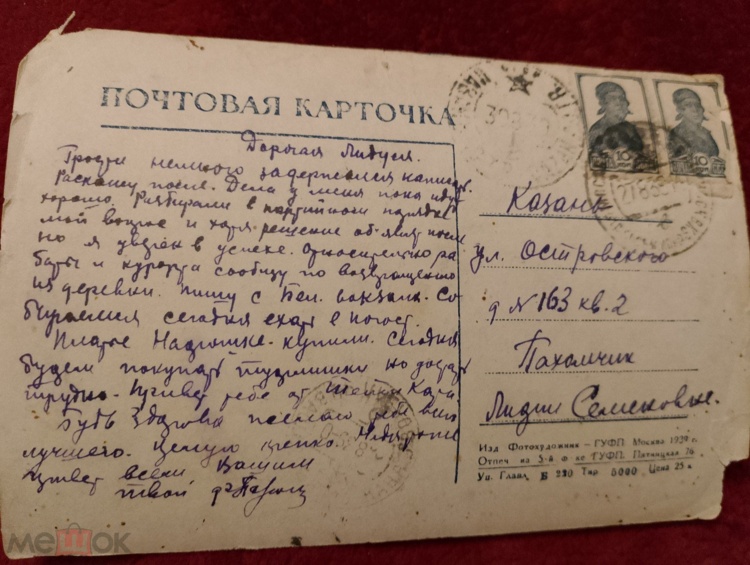 ПОЧТОВАЯ КАРТОЧКА
Дорогая Лидуся.
немного задержался написат.
Раскажу после. Дела у меня пока идут
хорошо. Разбирали в партийном порядке
мой вопрос и хотя решение об'явят после
но я уверен в успехе. Относительно ра
боты и курорта сообщу по возвращению
из деревни. Пишу с Бел. вокзала. Со
бираемся сегодня ехать в
Платье купили. Сегодня
будем покупать но достат
трудно. Привет тебе от
Будь здорова желаю тебе всего
лучшего. Целую крепко
Привет всем Вашим
твой
Казань
ул. Островского
д № 163 кв. 2
Пахомчик
Лидии Семеновне.
10
10
Изд Фотохудожник – ГУФП. Москва 1939 г.
Отпеч на 5-й ф ке ГУФП. Пятницкая 76
Уп. Главл. Б 230 Тир 5000 Цена 25 к
мешок